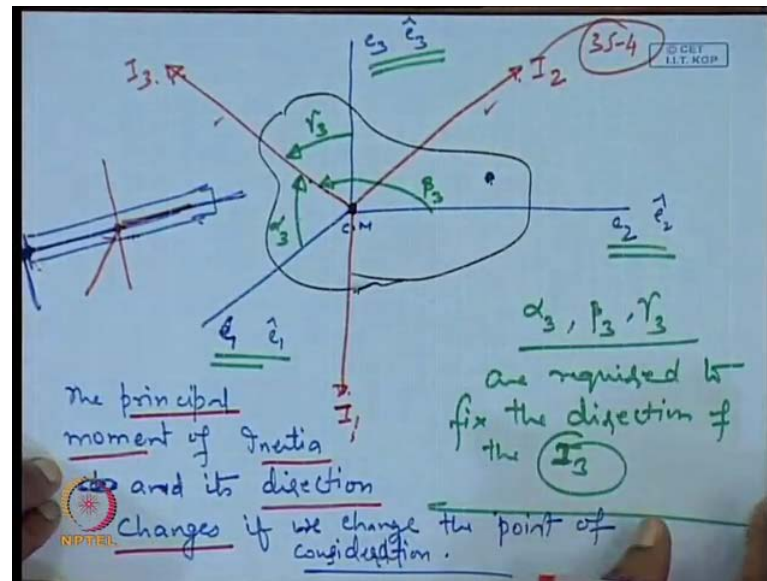 e3 ê3
35-4
© CET
I.I.T. KGP
I3
I2
γ3
β3
α3
C.M
e2 ê2
e1 ê1
I1
α3, β3, γ3
are required to
fix the direction of
the I3
The principal
moment of Inertia
and its direction
Changes if we change the point of
consideration.
NPTEL